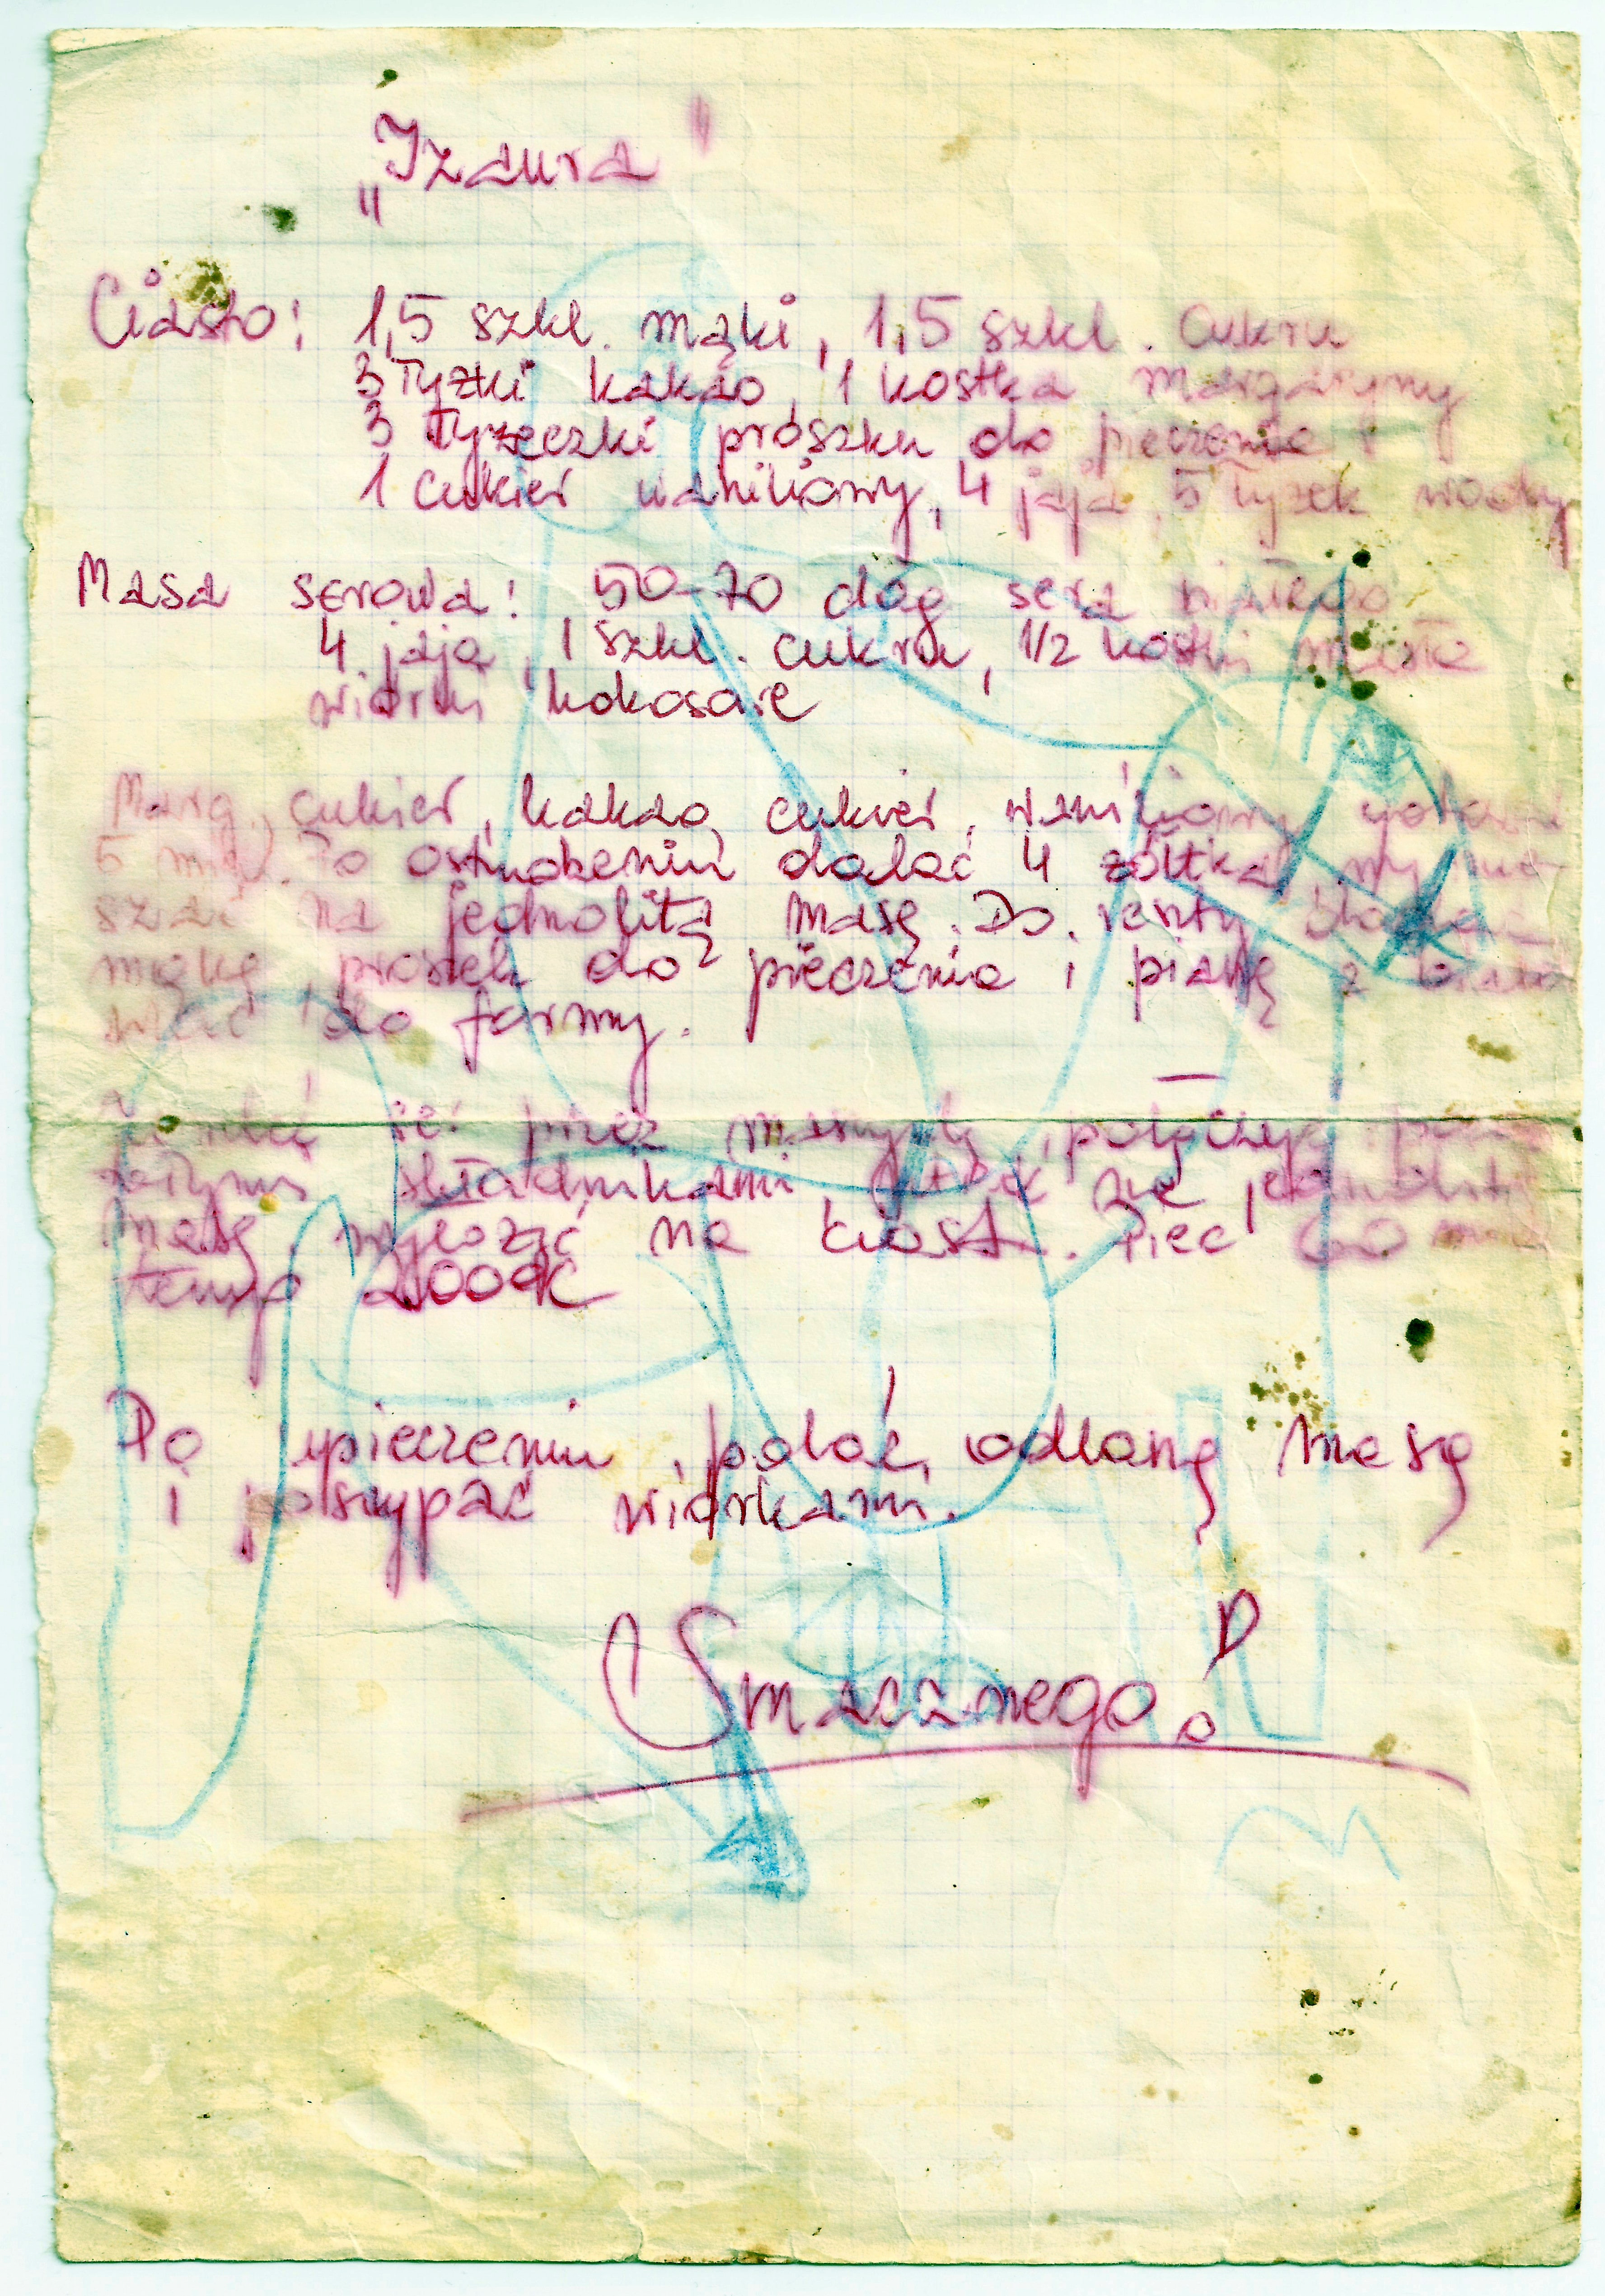 „Izaura"
Ciasto: 1,5 szkl. mąki, 1,5 szkl. cukru
3 łyżki kakao, 1 kostka margaryny
3 łyżeczki proszku do pieczenia
1 cukier waniliowy, 4 jaja, 5 łyżek wody
Masa serowa: 50-70 dag sera białego
4 jaja, 1 szkl. cukru, 1/2 kostki masła
wiórki kokosowe
Marg., cukier, kakao, cukier waniliowy
5 min. Po ostudzeniu dodać 4 żółtka, wymie-
szać na jednolitą masę. Do reszty
mąkę, proszek do pieczenia i pianę z
wlać do formy.
ser przez maszynkę, połączyć
składnikami
masę wyłożyć na ciasto. Piec
temp 200°C
Po upieczeniu, polać odlaną masą
i posypać wiórkami.
Smacznego!